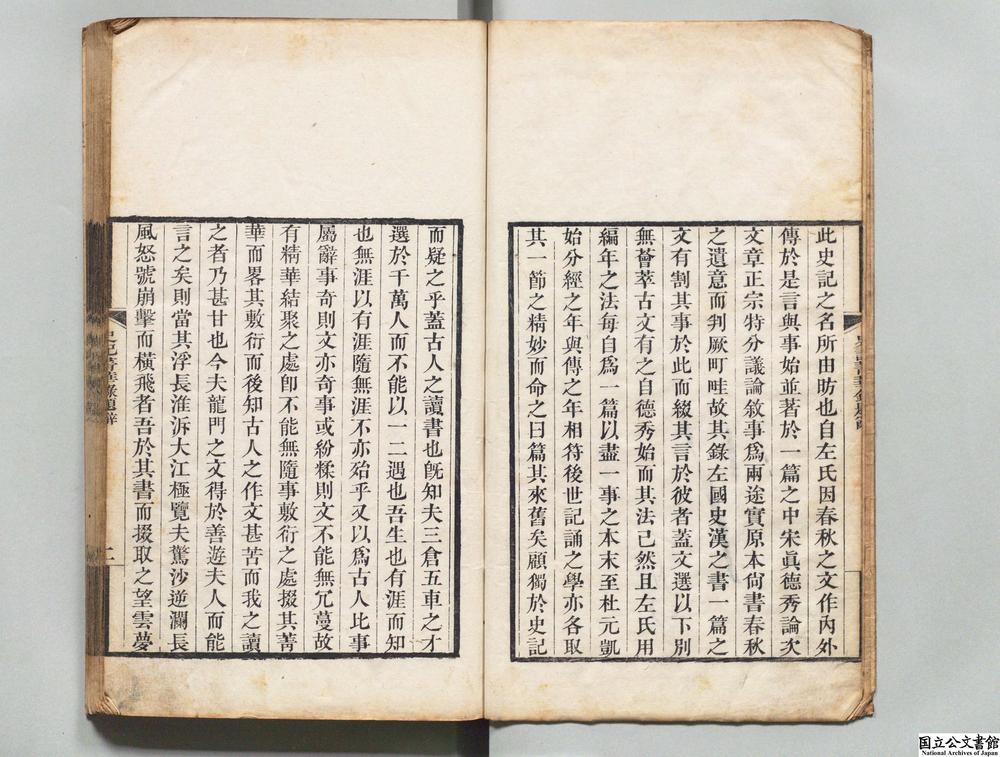 此史記之名所由昉也自左氏因春秋之文作內外
傳於是言與事始並著於一篇之中宋眞德秀論次
文章正宗特分議論敘事爲兩途實原本尙書春秋
之遺意而判厥町畦故其錄左國史漢之書一篇之
文有割其事於此而綴其言於彼者蓋文選以下別
無薈萃古文有之自德秀始而其法已然且左氏用
編年之法每自爲一篇以盡一事之本末至杜元凱
始分經之年與傳之年相待後世記誦之學亦各取
其一節之精妙而命之曰篇其來舊矣顧獨於史記
而疑之乎蓋古人之讀書也旣知夫三倉五車之才
選於千萬人而不能以一二遇也吾生也有涯而知
也無涯以有涯隨無涯不亦殆乎又以爲古人比事
屬辭事奇則文亦奇事或紛糅則文不能無冗蔓故
有精華結聚之處卽不能無隨事敷衍之處掇其菁
華而畧其敷衍而後知古人之作文甚苦而我之讀
之者乃甚甘也今夫龍門之文得於善遊夫人而能
言之矣則當其浮長淮泝大江極覽夫驚沙逆瀾長
風怒號崩擊而橫飛者吾於其書而掇取之望雲夢
史記菁華錄題辭
二
国立公文書館
National Archives of Japan